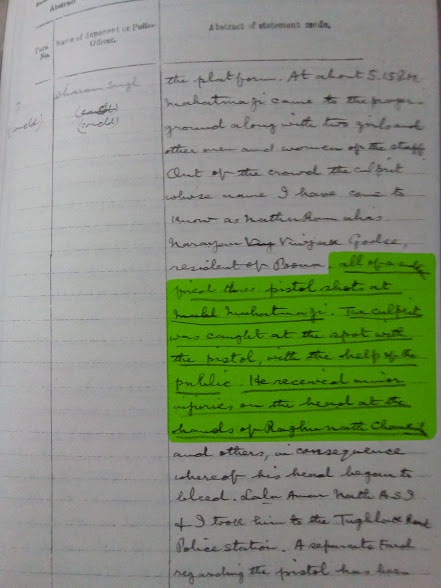 Abstract
Abstract of statement made.
Para No.
Name of deponent or Police Officer.
7
(contd)
Dharam Singh
(contd)
(contd)
the platform. At about 5.15 P.M
Mahatmaji came to the prayer
ground along with two girls and
other men and women of the staff
Out of the crowd the culprit
whose name I have come to
know as Nathu Ram alias
Narayan Vinayak Godse,
resident of Poona, all of a
fired three pistol shots at
Mahatmaji. The culprit
was caught at the spot with
the pistol, with the help of the
public. He received minor
injuries on the head at the
hands of Raghu nath
and others, in consequence
whereof his head began to
bleed. Lala Amar Nath A.S.I
& I took him to the Tughlak Road
Police station. A separate Fard
regarding the pistol has been